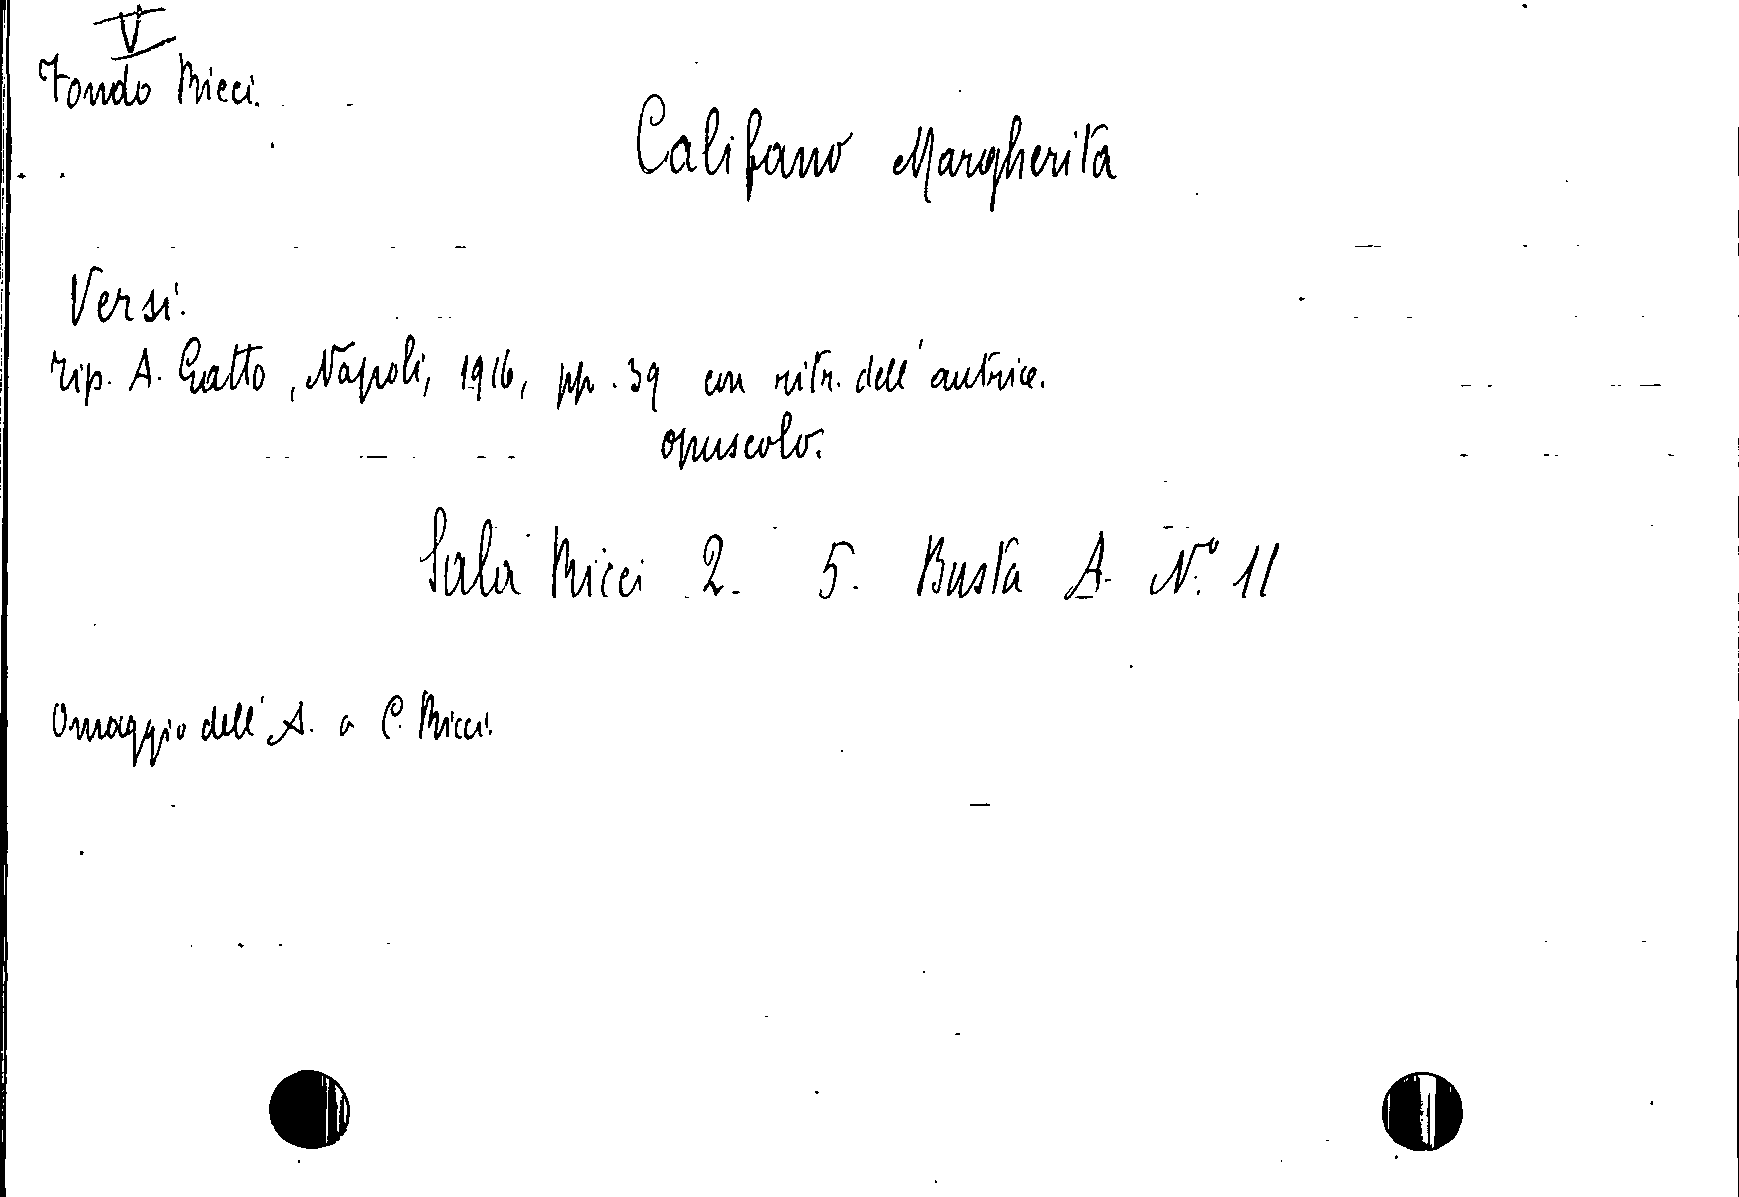 V
Fondo Ricci.
Califano Margherita
Versi.
Tip. A. Gatto, Napoli, 1916, pp. 39 con ritr. dell'autrice.
opuscolo.
Sala Ricci 2. 5. Busta A. N.° 11
Omaggio dell'A. a C. Ricci.